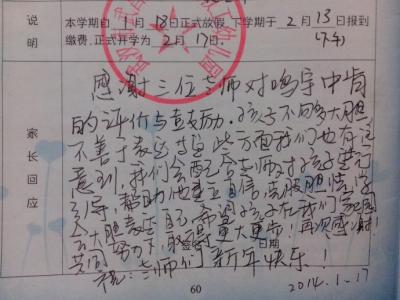 说明
本学期自 1 月 18 日正式放假,下学期于 2 月 13 日报到
缴费,正式开学为 2 月 17 日。
家长回应
感谢三位老师对鸣宇中肯
的评价与鼓励。孩子不够大胆,
不善于表达,这些方面我们也有注
意到,我们会配合老师对孩子进行
引导,帮助他建立自信,克服胆怯,学
会大胆表达自己。希望孩子在我们
共同努力下,取得更大进步!再次感谢!
日期
祝:老师们新年快乐!
2014.1.17
60